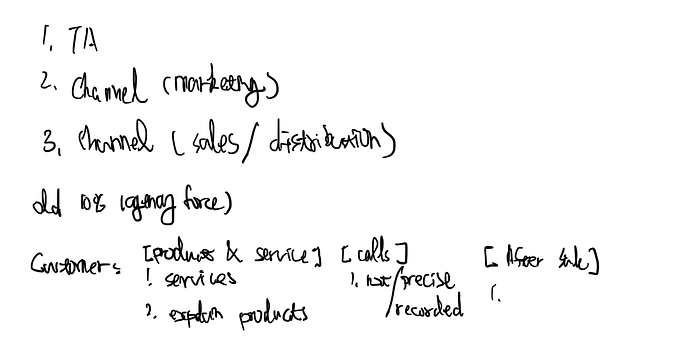 1. TA
2. Channel (marketing)
3. Channel (sales / distribution)
old 10% (agency force)
Customer: [product & service] [calls] [After sale]
1. services 1. not/precise 1.
2. explain products /recorded